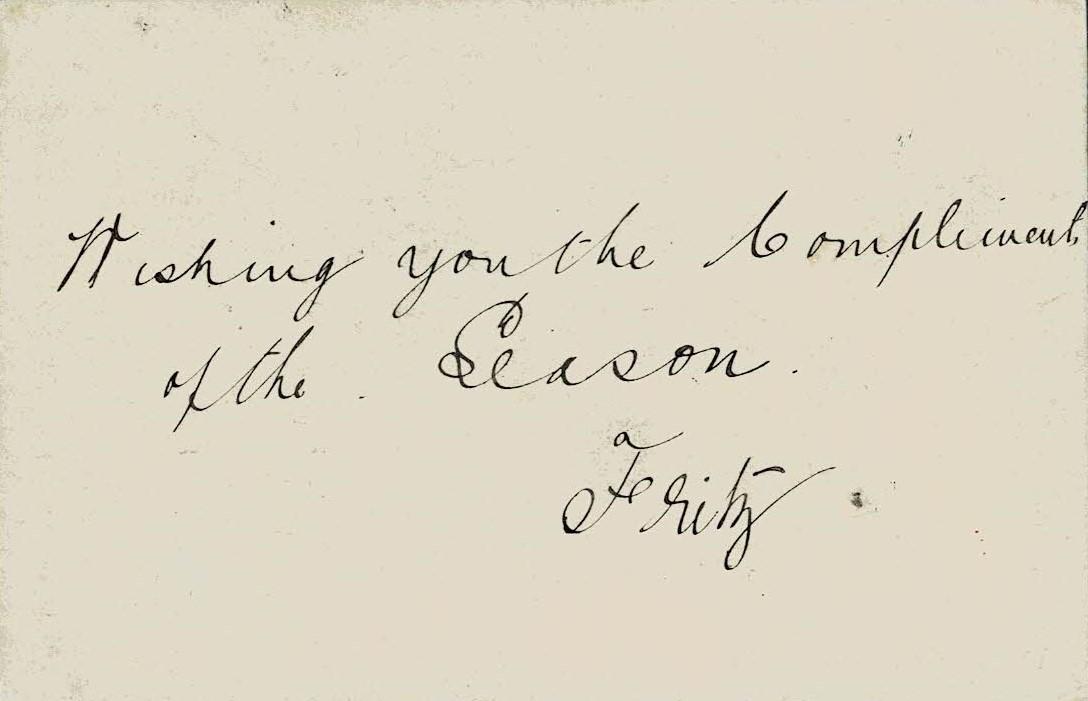 Wishing you the Compliments
of the . Season .
Fritz